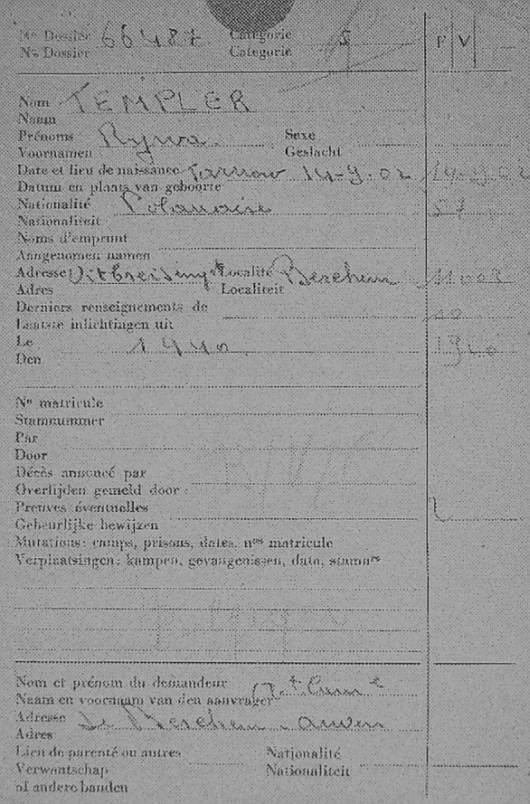 No Dossier 66487 Catégorie 5 F V
No. Dossier Categorie
Nom TEMPLER
Naam
Prénoms Rywa Sexe
Voornamen Geslacht
Date et lieu de naissance Tarnow 14-9-02 14-9-02
Datum en plaats van geboorte
Nationalité Polonaise 57
Nationaliteit
Noms d'emprunt
Aangenomen namen
Adresse Uitbreisingst Localité Berchem 11002
Adres Localiteit
Derniers renseignements de 10
Laatste inlichtingen uit
Le 1940 1940
Den
No matricule
Stamnummer
Par
Door
Décès annoncé par
Overlijden gemeld door :
Preuves éventuelles
Gebeurlijke bewijzen
Mutations: camps, prisons, dates, nos matricule
Verplaatsingen: kampen, gevangenissen, data, stamnrs
Nom et prénom du demandeur
Naam en voornaam van den aanvrager
Adresse de Berchem-Anvers
Adres
Lien de parenté ou autres Nationalité
Verwantschap Nationaliteit
of andere banden